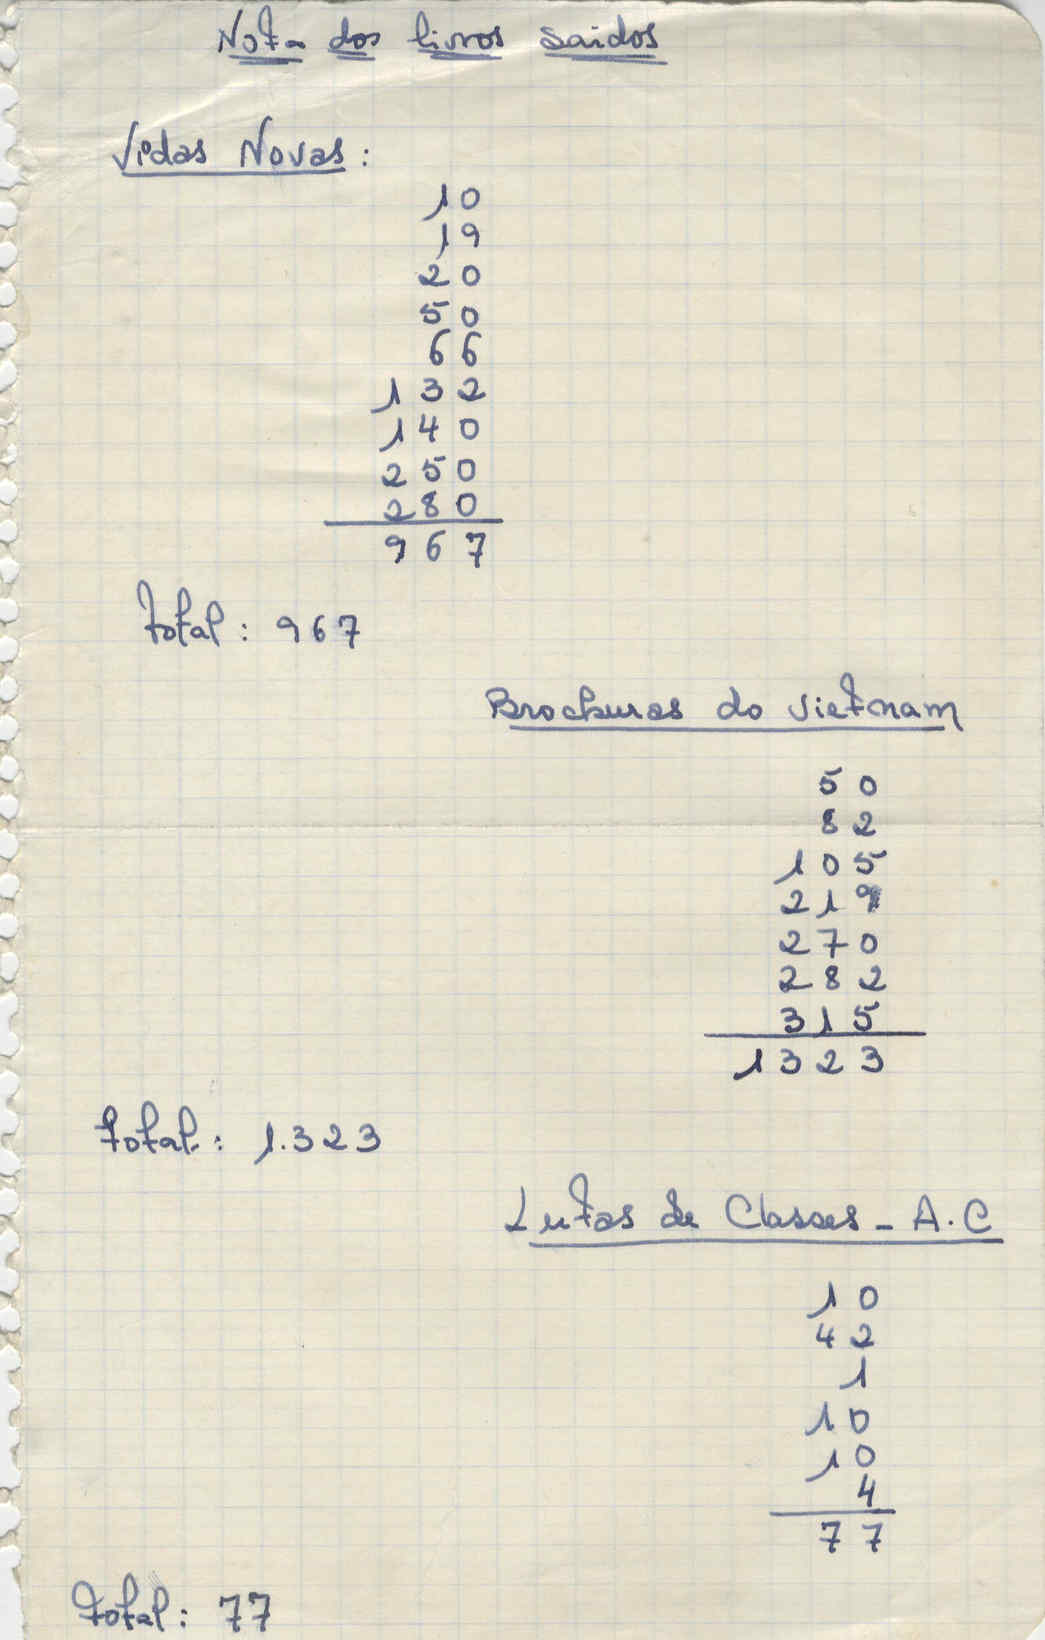 Nota dos livros saidos
Vidas Novas:
10
19
20
50
66
132
140
250
280
967
Total: 967
Brochuras do Vietnam
50
82
105
219
270
282
315
1323
Total: 1.323
Lutas de Classes - A.C
10
42
1
10
10
4
77
Total: 77